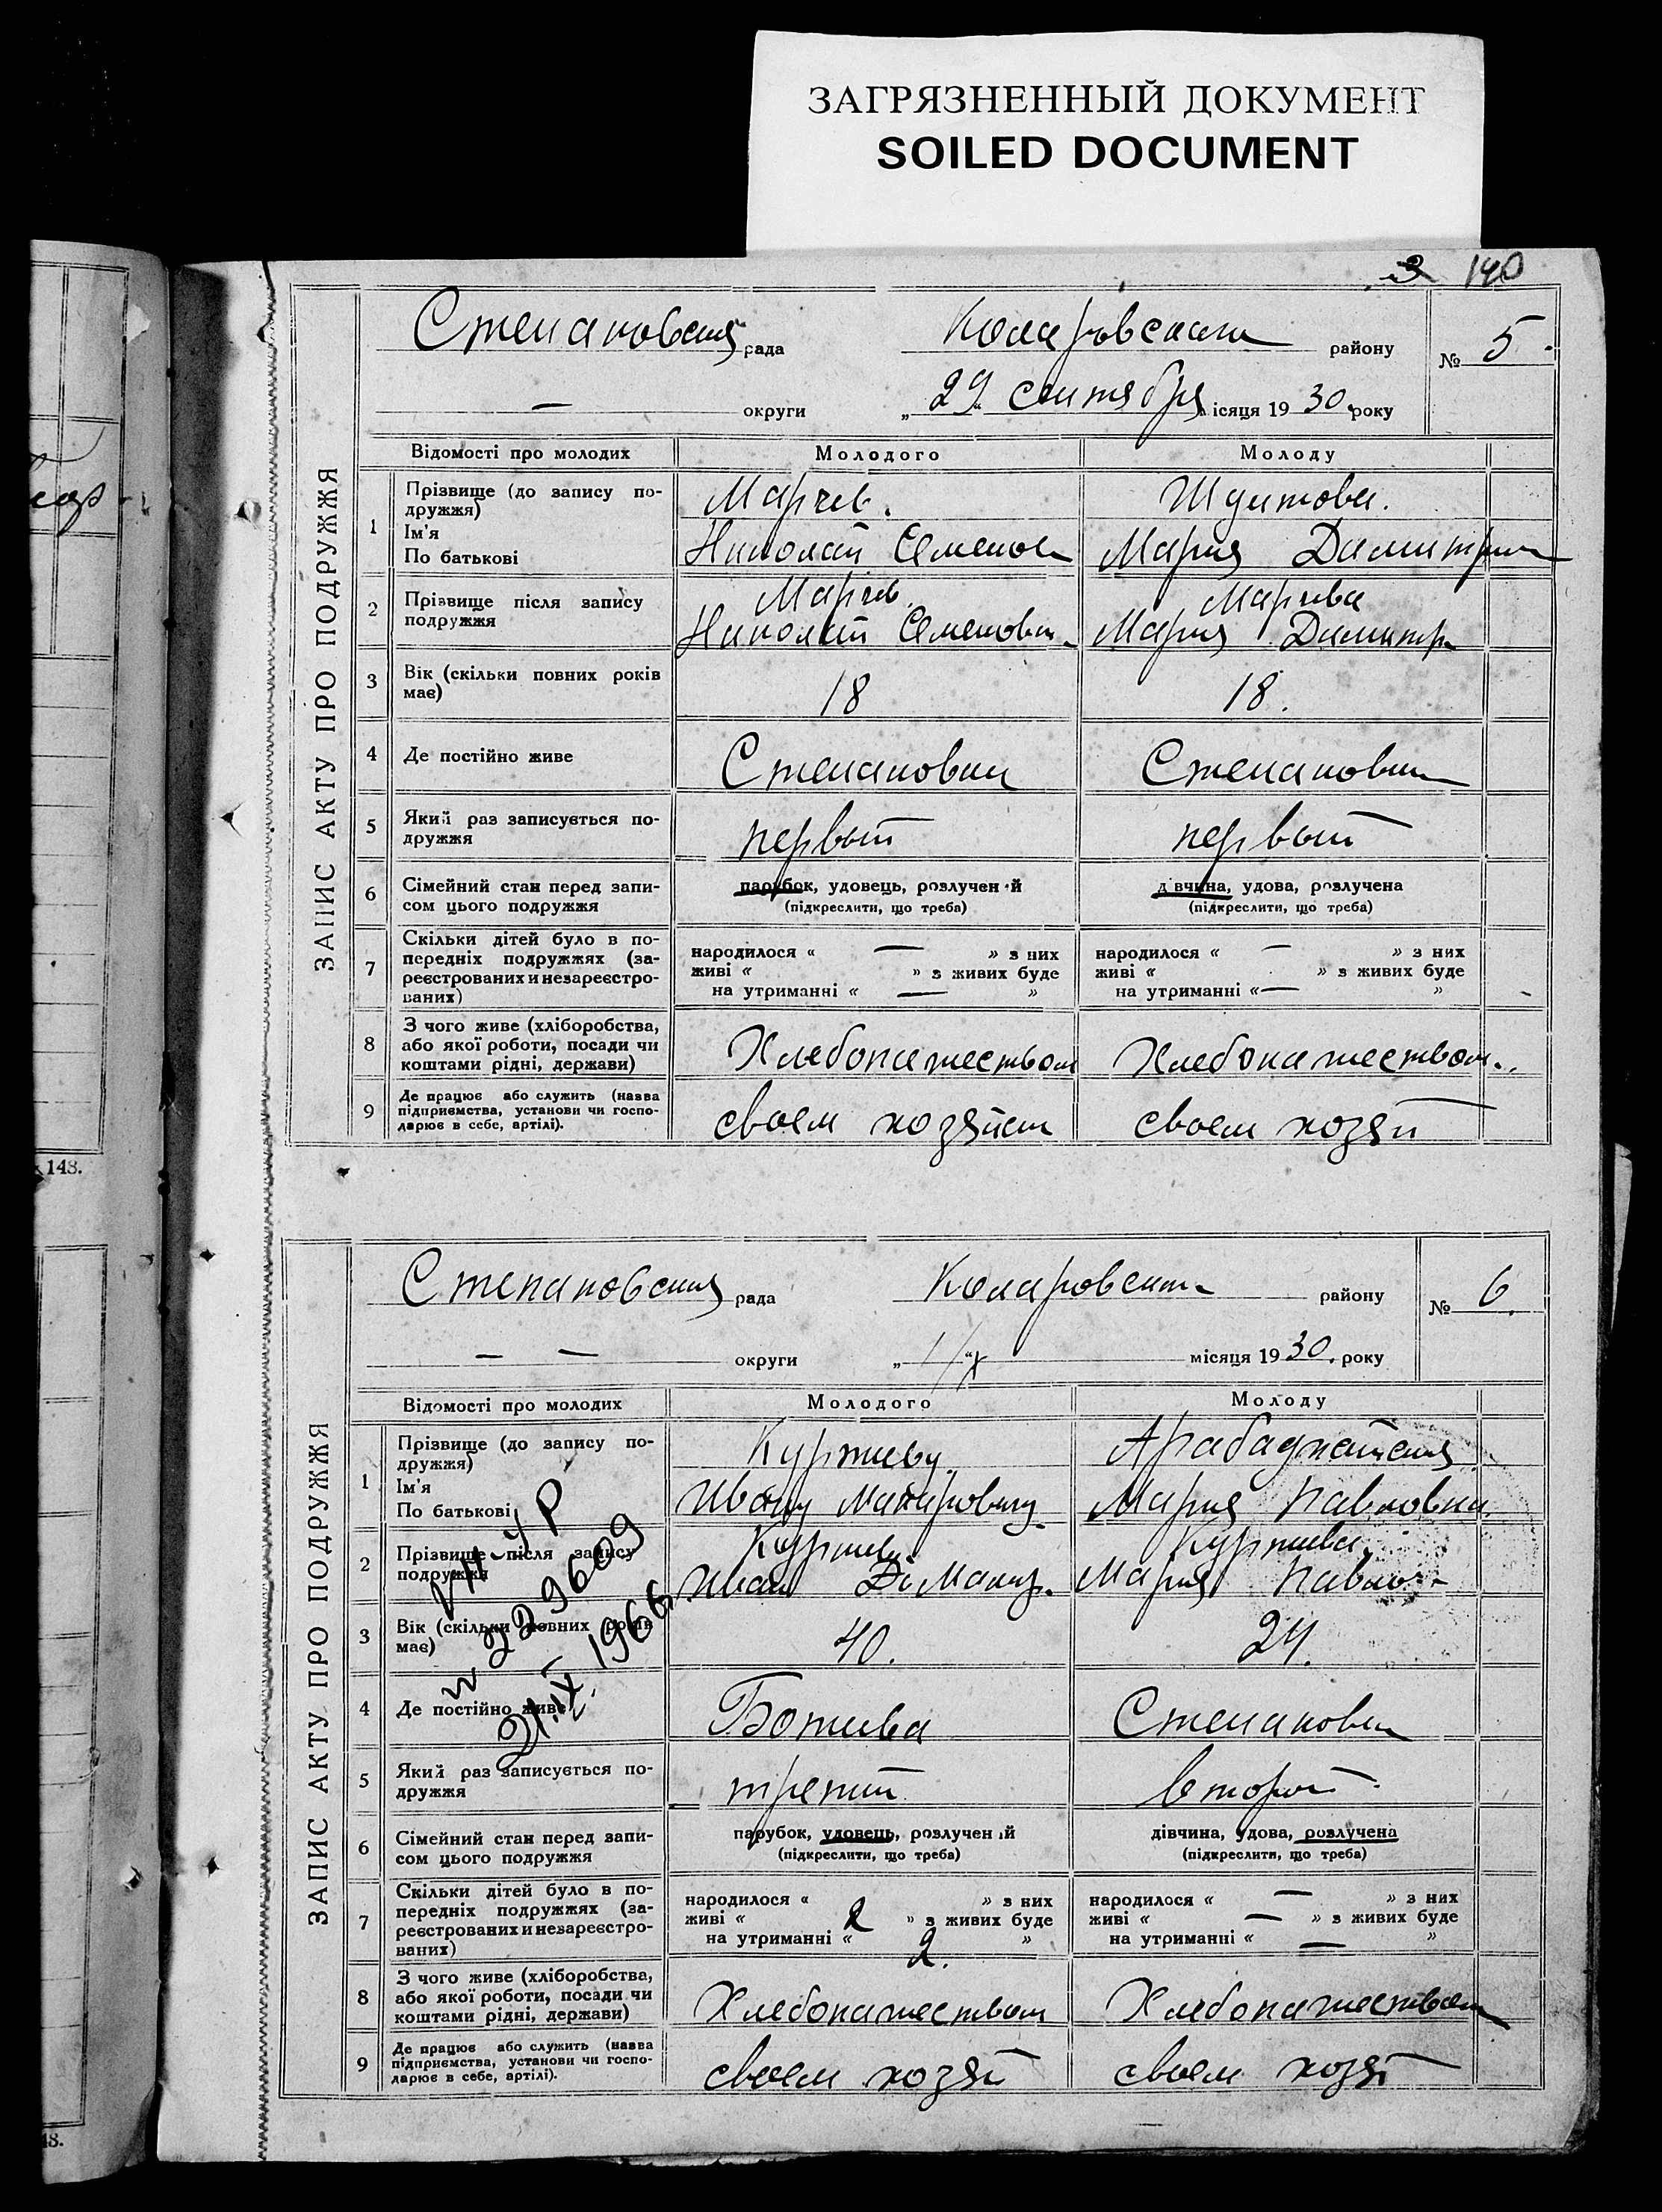 ЗАГРЯЗНЕННЫЙ ДОКУМЕНТ
SOILED DOCUMENT
140
Степановская рада Коларовскага району № 5.
— округи „29“ сентября місяця 1930. року
ЗАПИС АКТУ ПРО ПОДРУЖЖЯ
Відомості про молодих Молодого Молоду
1 Прізвище (до запису по-
дружжя) Марчев.
Ім'я
По батькові Николай Семенов Мария Димитри
2 Прізвище після запису
подружжя Марчев. Марчева
Николай Семенович Мария Димитр
3 Вік (скільки повних років
має) 18 18.
4 Де постійно живе Степановки Степановки
5 Який раз записується по-
дружжя первый первый
6 Сімейний стан перед запи-
сом цього подружжя
парубок, удовець, розлучений дівчина, удова, розлучена
(підкреслити, що треба) (підкреслити, що треба)
7 Скільки дітей було в по-
передніх подружжях (за-
реєстрованих и незареєстро-
ваних)
народилося « — » з них народилося « — » з них
живі « » з живих буде живі « » з живих буде
на утриманні « — » на утриманні « — »
8 З чого живе (хліборобства,
або якої роботи, посади чи
коштами рідні, держави)
Хлебопашеством Хлебопашеством.
9 Де працює або служить (назва
підприємства, установи чи госпо-
дарює в себе, артілі).
своем хозяйст своем хозяй
148.
Степановская рада Коларовскага району № 6.
— — округи „1“ X місяця 1930. року
ЗАПИС АКТУ ПРО ПОДРУЖЖЯ
Відомості про молодих Молодого Молоду
1 Прізвище (до запису по-
дружжя) Куртеву. Арабаджийская
Ім'я
По батькові Ивану Макаровичу Мария Павловна.
2 Прізвище після запису
подружжя Куртев Куртева
Иван Макар. Мария Павлов
3 Вік (скільки повних років
має) 40. 24.
VII-УР
N 229609
21.IX.1966
4 Де постійно живе Ботиева Степановки
5 Який раз записується по-
дружжя третий второй
6 Сімейний стан перед запи-
сом цього подружжя
парубок, удовець, розлучений дівчина, удова, розлучена
(підкреслити, що треба) (підкреслити, що треба)
7 Скільки дітей було в по-
передніх подружжях (за-
реєстрованих и незареєстро-
ваних)
народилося « » з них народилося « — » з них
живі « 2 » з живих буде живі « — » з живих буде
на утриманні « 2. » на утриманні « — »
8 З чого живе (хліборобства,
або якої роботи, посади чи
коштами рідні, держави)
Хлебопашеством Хлебопашеством
9 Де працює або служить (назва
підприємства, установи чи госпо-
дарює в себе, артілі).
своем хозяй своем хозяй